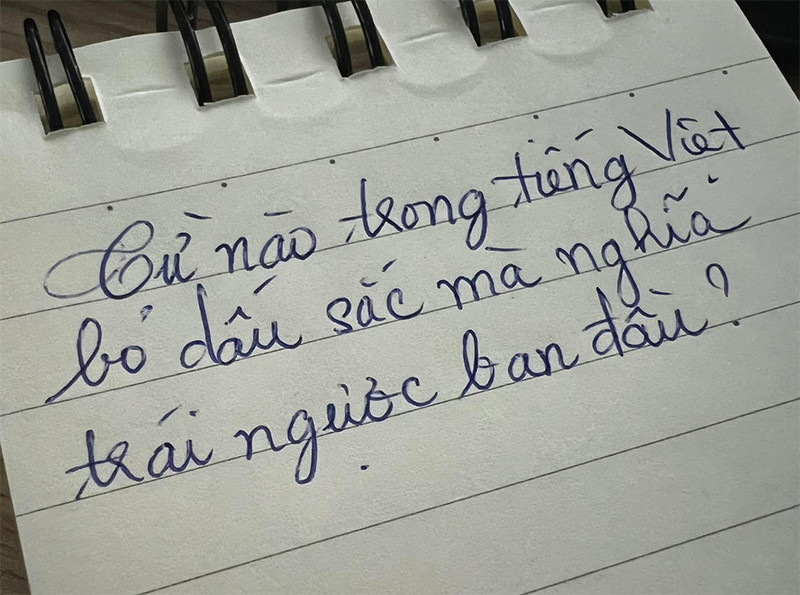 Từ nào trong tiếng Việt
bỏ dấu sắc mà nghĩa
trái ngược ban đầu?